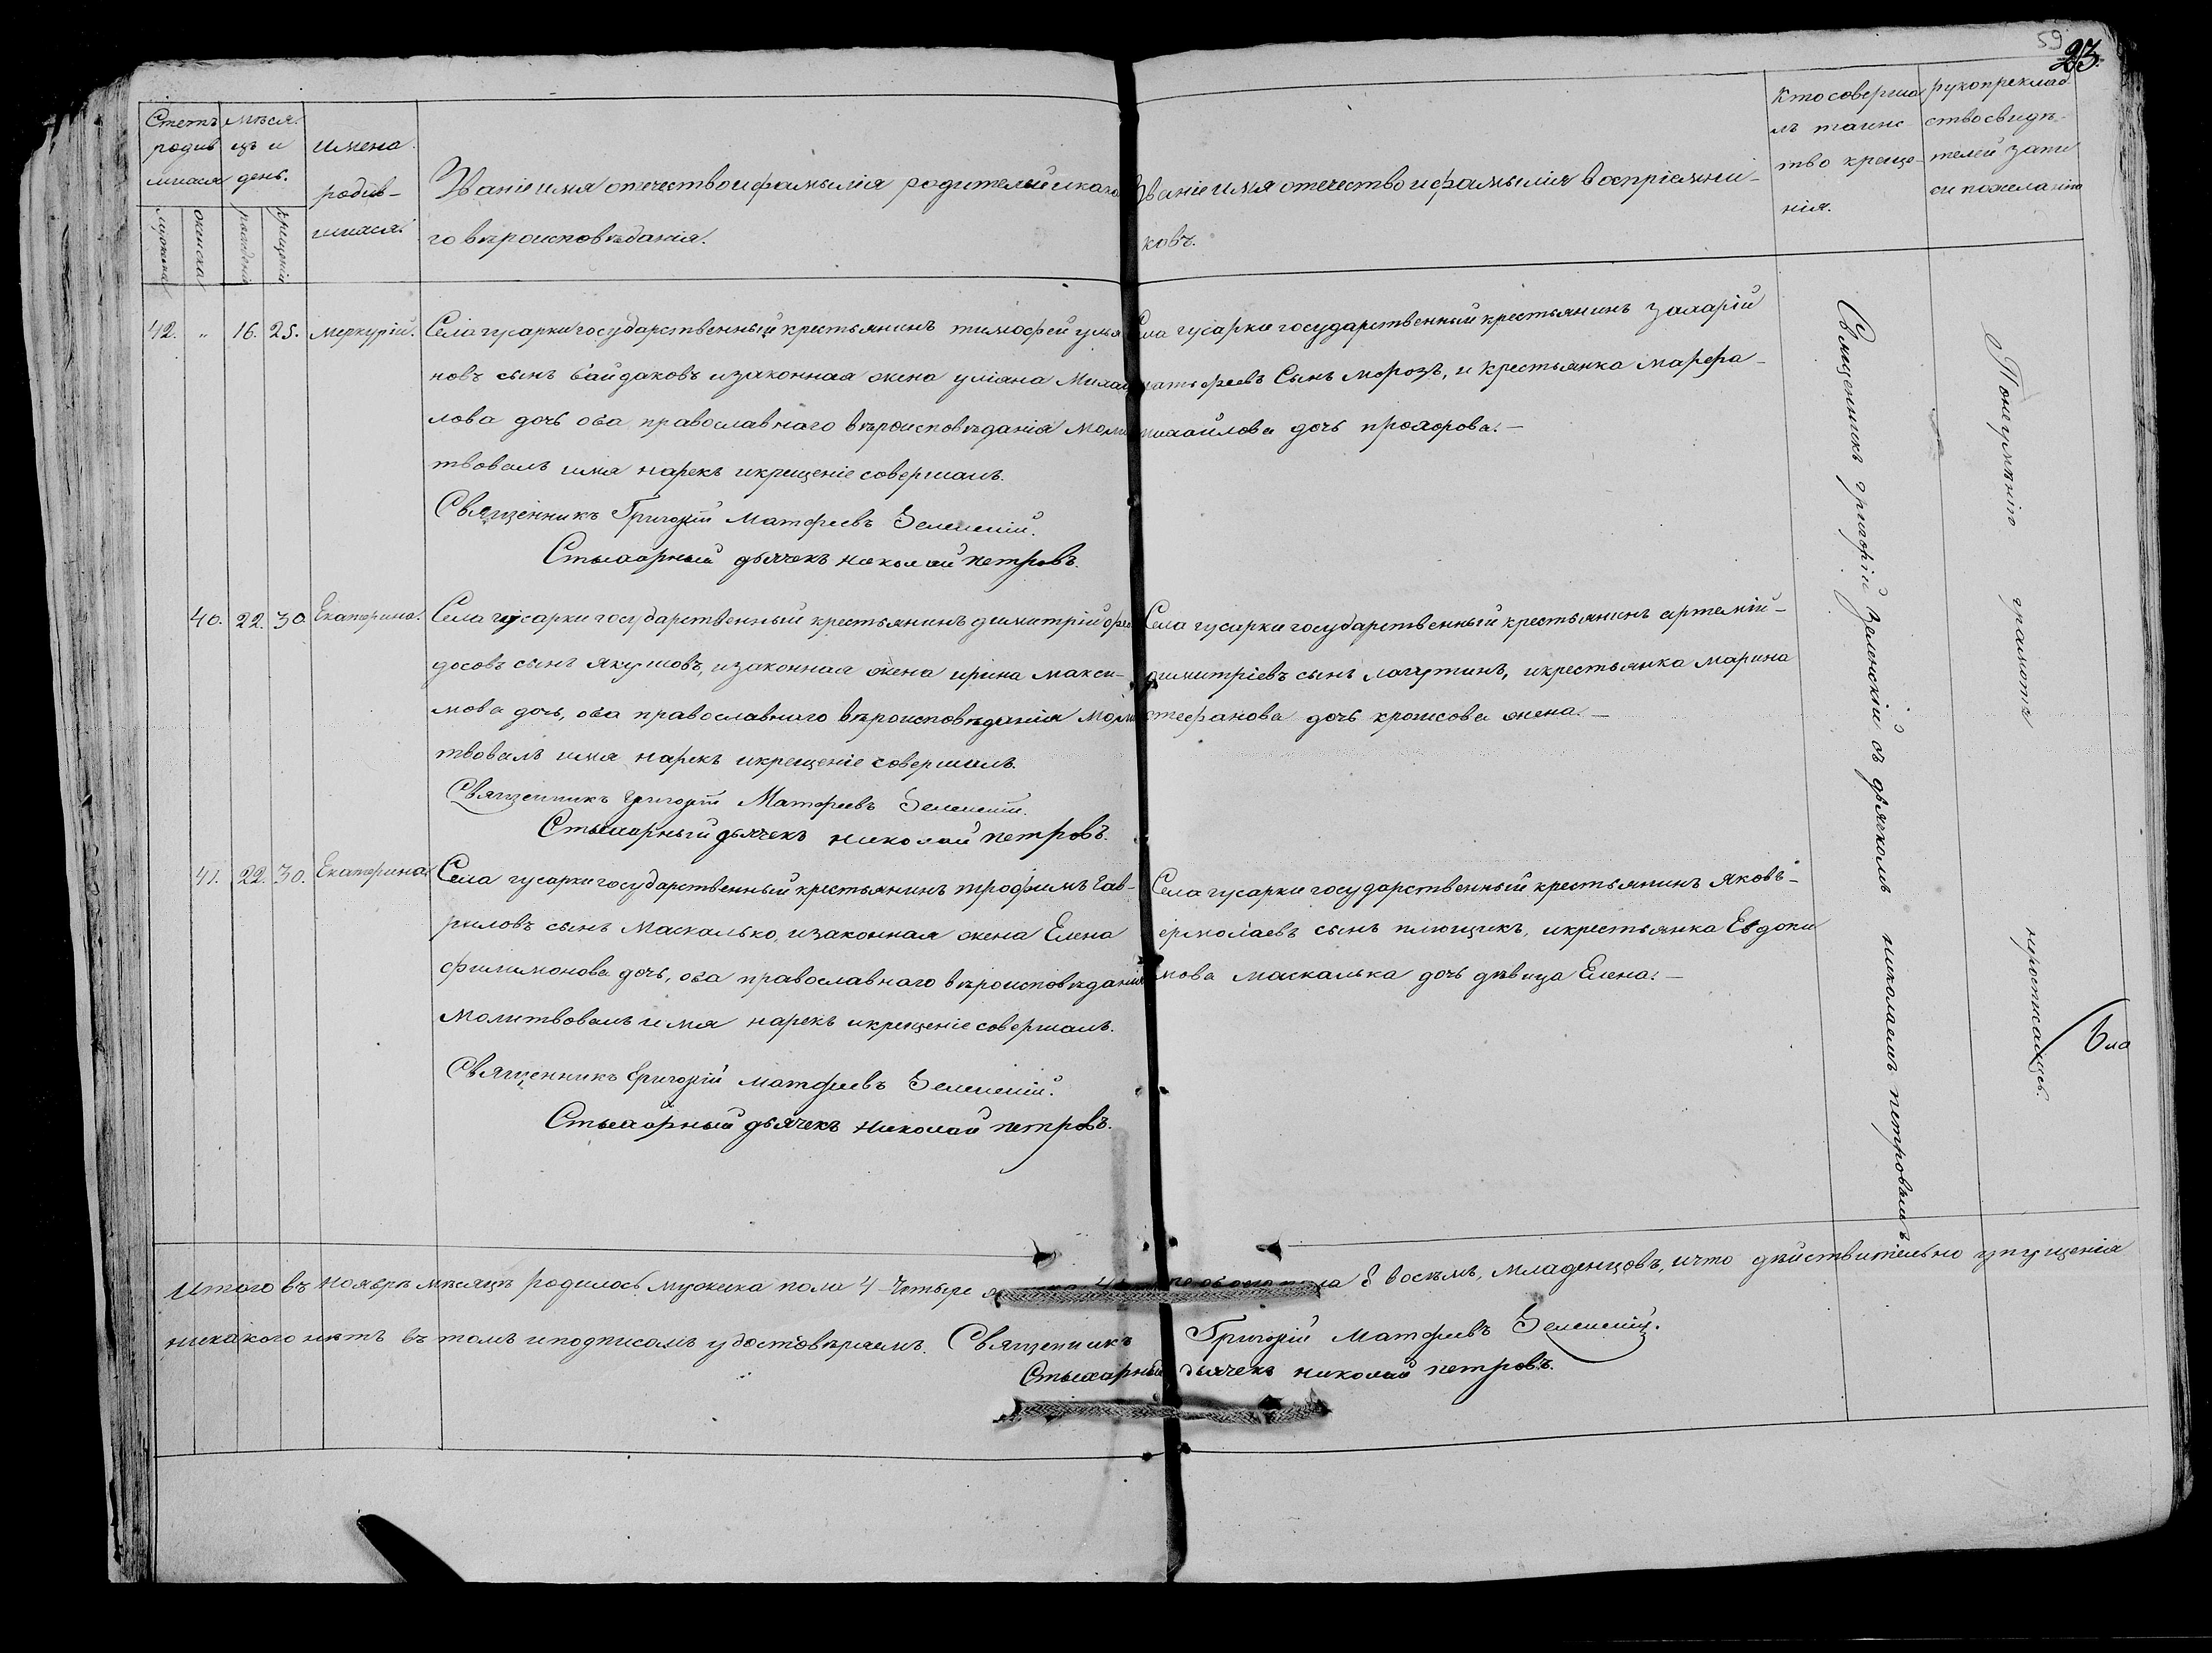 59
23.
Счетъ родив шихся
мѣся цъ и день.
имена родив- шихся.
Званіе имя отечество и фамылія родителей и како
го вѣроисповѣданія.
Званіе имя отечество и фамылія воспріемни-
ковъ.
Кто соверша лъ таинс тво креще- нія.
рукоприклад ство свидѣ- телей запи си по желанію
мужска
женска
рожденія
крещенія
42. „ 16. 25. Меркурій.
Села гусарки государственный крестьянинъ тимофей улья
новъ сынъ байдаковъ и законная жена уліяна Михай
лова дочь оба православнаго вѣроисповѣданія Моли
твовалъ имя нарекъ и крещеніе совершалъ.
Священникъ Григорій Матфеевъ Зеленскій.
Стыхарный дьячекъ николай петровъ.
Села гусарки государственный крестьянинъ захарій
матфеевъ Сынъ морозъ, и крестьянка марфа-
михайлова дочь прохорова.-
40. 22. 30. Екатерина.
Села гусарки государственный крестьянинъ димитрій фео
досовъ сынъ якушовъ, и законная жена ирина макси-
мова дочь, оба православнаго вѣроисповѣданія моли
твовалъ имя нарекъ и крещеніе совершалъ.
Священникъ Григорій Матфеевъ Зеленскій.
Стыхарный дьячекъ николай петровъ.
Села гусарки государственный крестьянинъ артемій-
димитріевъ сынъ лагутинъ, и крестьянка марина
стефанова дочь жена.-
41. 22. 30. Екатерина
Села гусарки государственный крестьянинъ трофимъ Гав-
риловъ сынъ Маскалько, и законная жена Елена
филимонова дочь, оба православнаго вѣроисповѣданія
Молитвовалъ имя нарекъ и крещеніе совершалъ.
Священникъ Григорій матфеевъ Зеленскій.
Стыхарный дьячекъ николай петровъ.
Села гусарки государственный крестьянинъ Яковъ-
ермолаевъ сынъ плющикъ, и крестьянка Евдоки
мова маскалька дочь дѣвица Елена.-
Священникъ григорій Зеленскій съ дьячкомъ николаемъ петровымъ.
Понеумѣнію грамоты
Итого въ ноябрѣ мѣсяцѣ родилось мужска пола 4 четыре 8 восѣмъ, младенцовъ, и что дѣйствительно упущенія
никакого нѣтъ въ томъ и подписомъ удостовѣряемъ. Священникъ Григорій Матфеевъ Зеленскій.
Стыхарный дьячекъ николай петровъ.